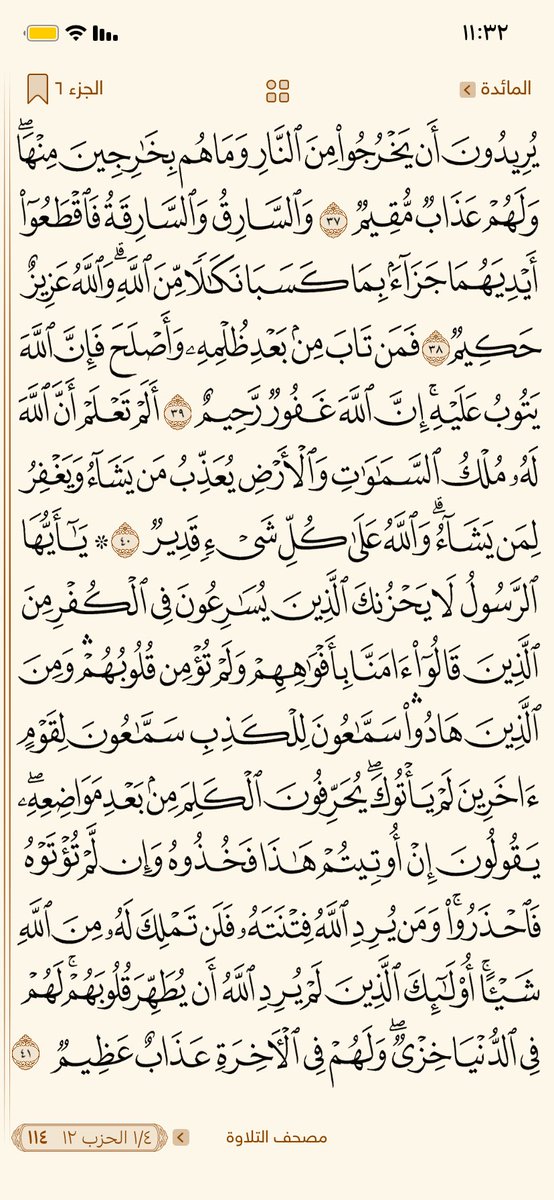 ١١:٣٢
المائدة
الجزء ٦
يُرِيدُونَ أَن يَخۡرُجُواْ مِنَ ٱلنَّارِ وَمَا هُم بِخَٰرِجِينَ مِنۡهَاۖ
وَلَهُمۡ عَذَابٞ مُّقِيمٞ ٣٧ وَٱلسَّارِقُ وَٱلسَّارِقَةُ فَٱقۡطَعُوٓاْ
أَيۡدِيَهُمَا جَزَآءَۢ بِمَا كَسَبَا نَكَٰلٗا مِّنَ ٱللَّهِۗ وَٱللَّهُ عَزِيزٌ
حَكِيمٞ ٣٨ فَمَن تَابَ مِنۢ بَعۡدِ ظُلۡمِهِۦ وَأَصۡلَحَ فَإِنَّ ٱللَّهَ
يَتُوبُ عَلَيۡهِۚ إِنَّ ٱللَّهَ غَفُورٞ رَّحِيمٌ ٣٩ أَلَمۡ تَعۡلَمۡ أَنَّ ٱللَّهَ
لَهُۥ مُلۡكُ ٱلسَّمَٰوَٰتِ وَٱلۡأَرۡضِ يُعَذِّبُ مَن يَشَآءُ وَيَغۡفِرُ
لِمَن يَشَآءُۗ وَٱللَّهُ عَلَىٰ كُلِّ شَيۡءٖ قَدِيرٞ ٤٠ ۞ يَٰٓأَيُّهَا
ٱلرَّسُولُ لَا يَحۡزُنكَ ٱلَّذِينَ يُسَٰرِعُونَ فِي ٱلۡكُفۡرِ مِنَ
ٱلَّذِينَ قَالُوٓاْ ءَامَنَّا بِأَفۡوَٰهِهِمۡ وَلَمۡ تُؤۡمِن قُلُوبُهُمۡۛ وَمِنَ
ٱلَّذِينَ هَادُواْۛ سَمَّٰعُونَ لِلۡكَذِبِ سَمَّٰعُونَ لِقَوۡمٍ
ءَاخَرِينَ لَمۡ يَأۡتُوكَۖ يُحَرِّفُونَ ٱلۡكَلِمَ مِنۢ بَعۡدِ مَوَاضِعِهِۦۖ
يَقُولُونَ إِنۡ أُوتِيتُمۡ هَٰذَا فَخُذُوهُ وَإِن لَّمۡ تُؤۡتَوۡهُ
فَٱحۡذَرُواْۚ وَمَن يُرِدِ ٱللَّهُ فِتۡنَتَهُۥ فَلَن تَمۡلِكَ لَهُۥ مِنَ ٱللَّهِ
شَيۡـًٔاۚ أُوْلَٰٓئِكَ ٱلَّذِينَ لَمۡ يُرِدِ ٱللَّهُ أَن يُطَهِّرَ قُلُوبَهُمۡۚ لَهُمۡ
فِي ٱلدُّنۡيَا خِزۡيٞۖ وَلَهُمۡ فِي ٱلۡأٓخِرَةِ عَذَابٌ عَظِيمٞ ٤١
مصحف التلاوة
١/٤ الحزب ١٢ ١١٤